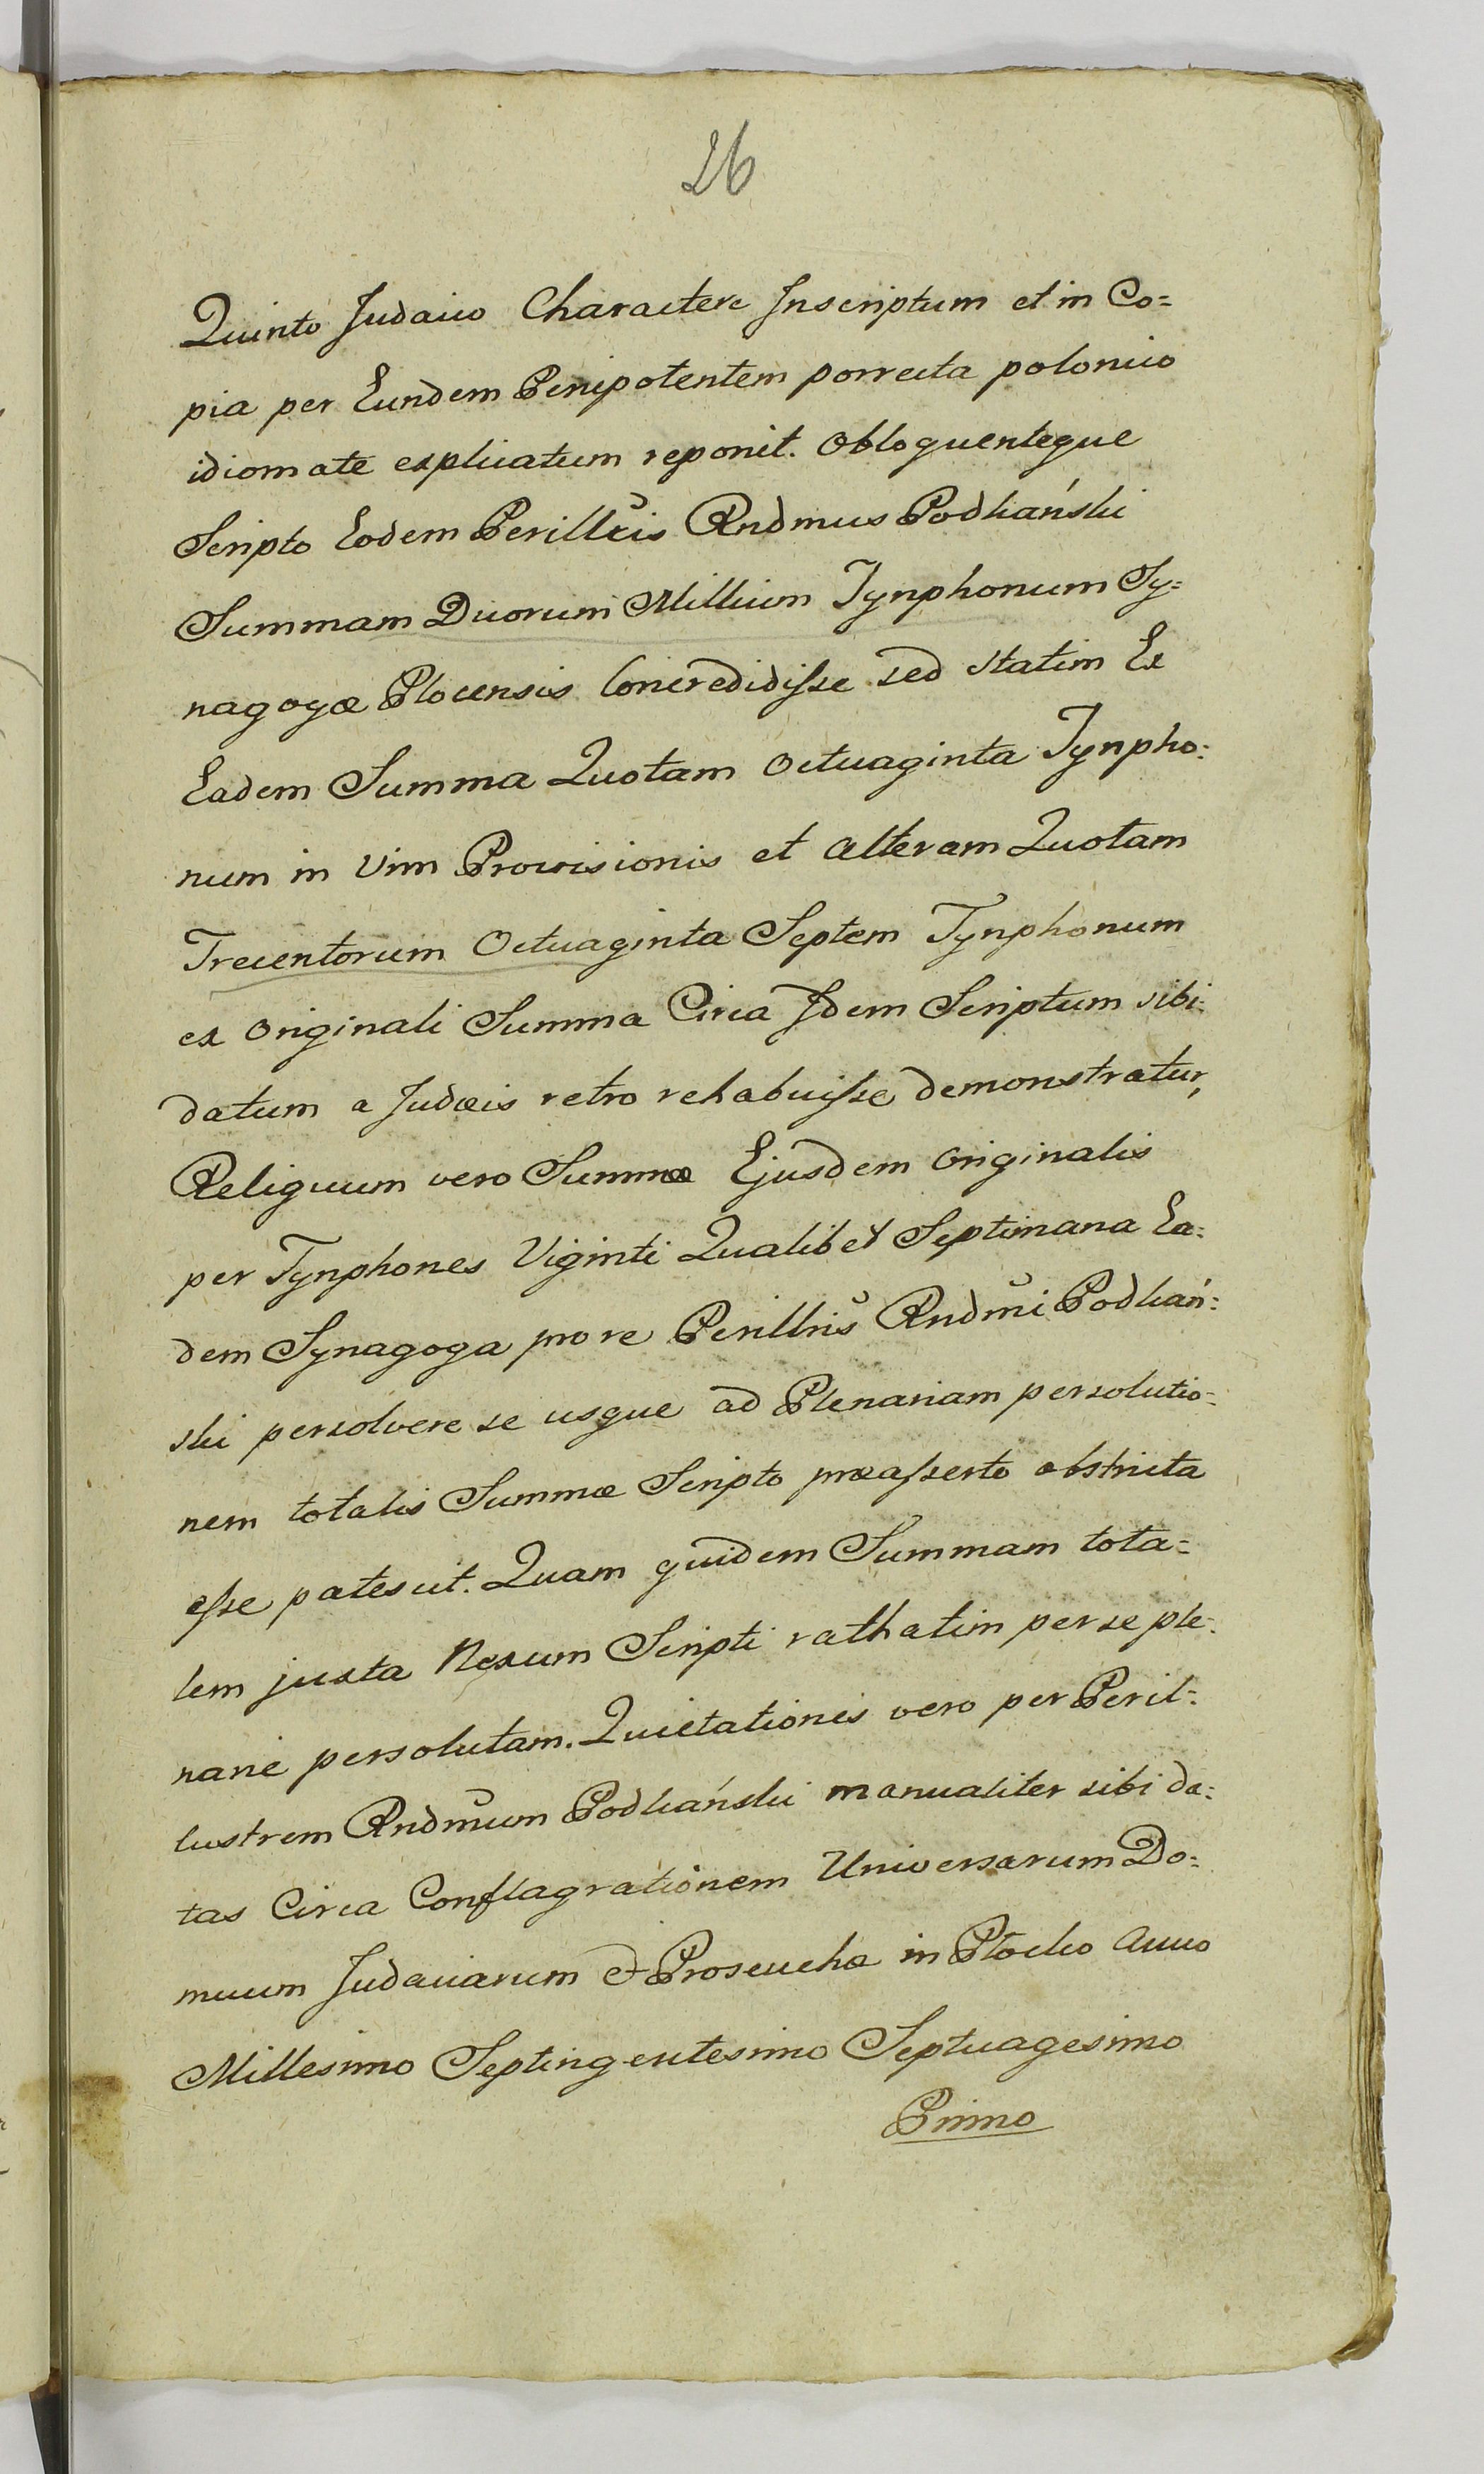 26
Quinto Judaico Charactere Inscriptum et in Co=
pia per Eundem Plenipotentem porrecta polonico
idiomate explicatum reponit. Obloquenteque
Scripto Eodem Perillris Rndmus Podkański
Summam Duorum Millium Tynphonum Sy=
nagogæ Plocensis Concredidisse sed statim Ex
Eadem Summa Quotam Octuaginta Tynpho=
num in Vim Provisionis et Alteram Quotam
Trecentorum Octuaginta Septem Tynphonum
ex Originali Summa Circa Idem Scriptum sibi
datum a Judæis retro rehabuisse demonstratur,
Reliquum vero Summæ Ejusdem Originalis
per Tynphones Viginti Qualibet Septimana Ea=
dem Synagoga pro re Perillris Rndmi Podkań=
ski persolvere se usque ad Plenariam persolutio=
nem totalis Summæ Scripto præasserto obstricta
esse patescit. Quam quidem Summam tota=
lem juxta Nexum Scripti rathatim per se ple=
narie persolutam. Quietationis vero per Peril=
lustrem Rndmum Podkański manualiter sibi da=
tas Circa Conflagrationem Universarum Do=
muum Judaicarum et Proseuchæ in Płocko Anno
Millesimo Septingentesimo Septuagesimo
Primo